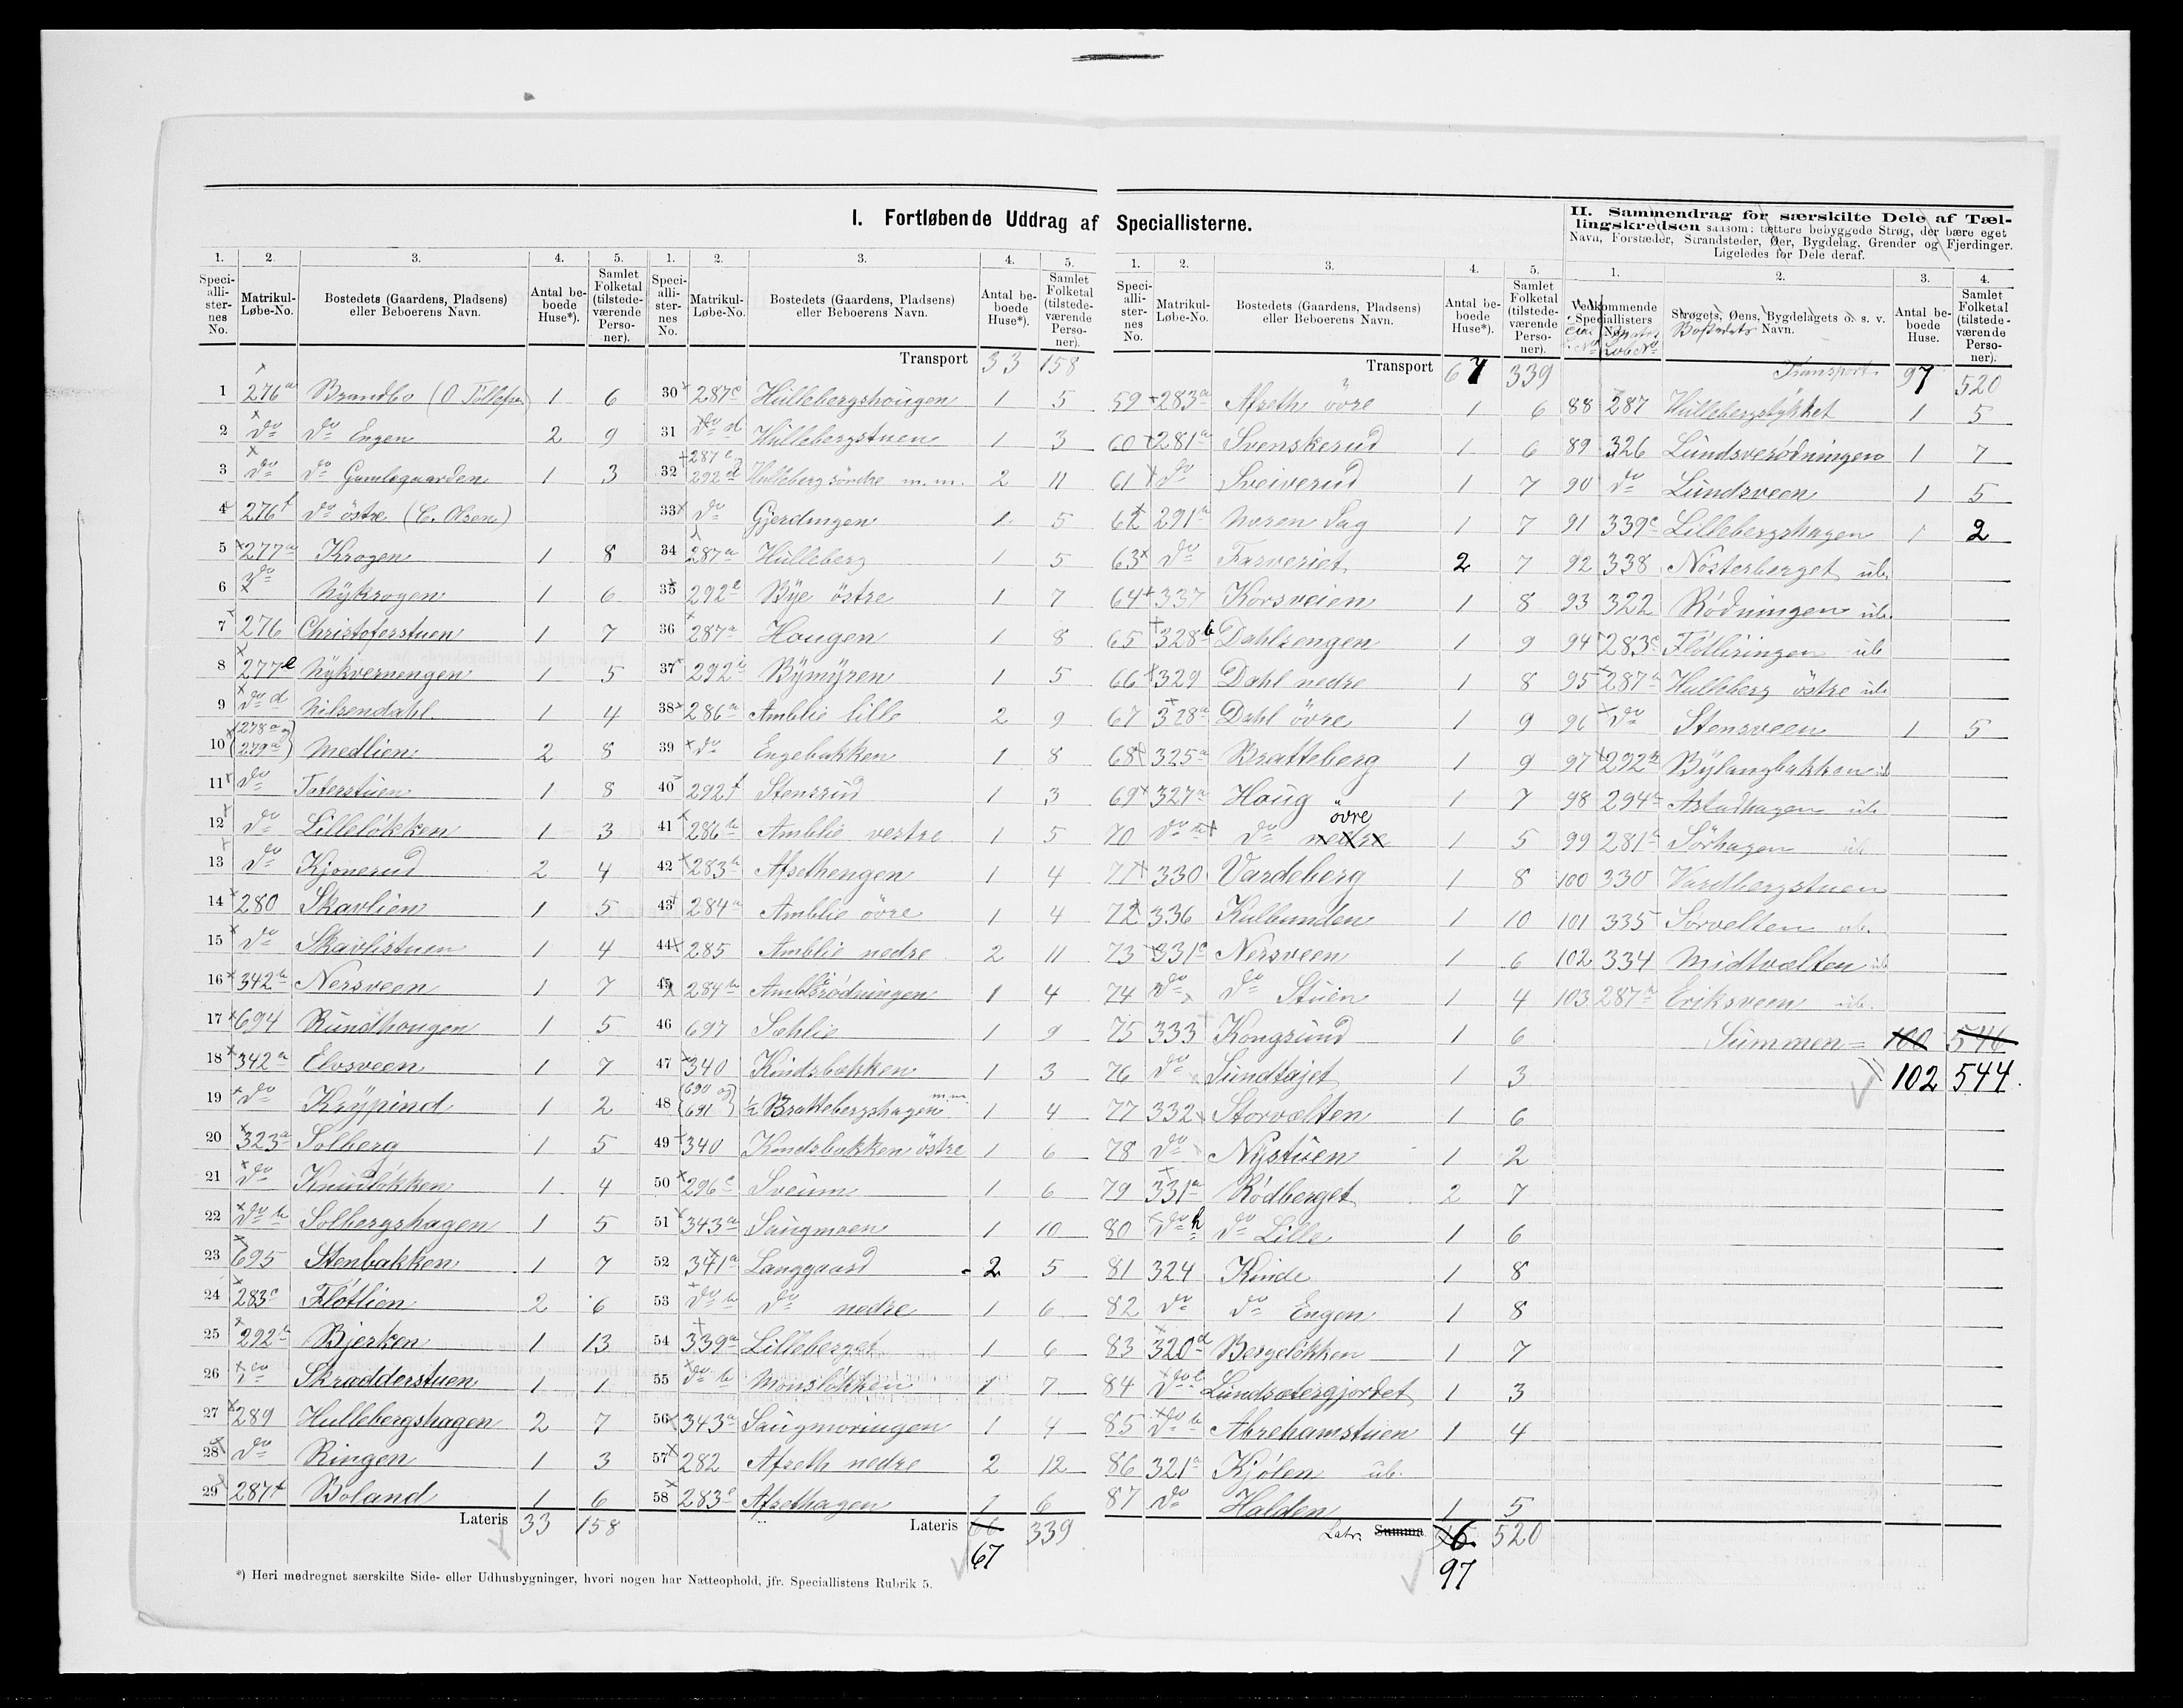 I. Fortløbende Uddrag af Speciallisterne.
1. 2. 3. 4. 5.
Speci-alli-ster-nes No. Matrikul-Løbe-No. Bostedets (Gaardens, Pladsens) eller Beboerens Navn. Antal be-boede Huse*). Samlet Folketal (tilstede-værende Perso-ner).
1 276a Brandbo (O Tollefsen 1 6
2 do do Engen 2 9
3 do do Gamlegaarden 1 3
4 276f do östre (C. Olsen)
5 277a Krogen 1 8
6 do Nÿkrogen 1 6
7 276 Christoferstuen 1 7
8 277e Nÿkvernengen 1 5
9 do d Nilsendahl 1 4
10 (278a og 279a) Medlien 2 8
11 do Toterstuen 1 8
12 do Lilleløkken 1 3
13 do Kjonerud 2 4
14 280 Skavlien 1 5
15 do Skavlistuen 1 4
16 342b Nersveen 1 7
17 694 Rundhougen 1 5
18 342a Elvsveen 1 7
19 do Krÿpind 1 2
20 323a Solberg 1 5
21 do Knudløkken 1 4
22 do b Solbergshagen 1 5
23 695 Stenbakken 1 7
24 283c Fløtlien 2 6
25 292b Bjerken 1 13
26 do Skradderstuen 1 1
27 289 Hullebergshagen 2 7
28 do Ringen 1 3
29 287f Boland 1 6
Lateris 33 158
1. 2. 3. 4. 5.
Speci-alli-ster-nes No. Matrikul-Løbe-No. Bostedets (Gaardens, Pladsens) eller Beboerens Navn. Antal be-boede Huse*). Samlet Folketal (tilstede-værende Perso-ner).
Transport 33 158
30 287c Hullebergshougen 1 5
31 do d Hullebergstuen 1 3
32 287e 292d Hulleberg söndre m.m. 2 11
33 do Gjerdingen 1 5
34 287a Hulleberg 1 5
35 292e Bye östre 1 7
36 287a Hougen 1 8
37 292i Bÿmÿren 1 5
38 286a Amblie lille 2 9
39 do Engebakken 1 8
40 292f Stensrud 1 3
41 286b Amblie vestre 1 5
42 283b Afsethengen 1 4
43 284a Amblie övre 1 4
44 285 Amblie nedre 2 11
45 284b Amblierødningen 1 4
46 697 Sæhlie 1 9
47 340 Kindsbakken 1 3
48 (690 og 691) ½ Brattebergshagen m.m. 1 4
49 340 Kindsbakken östre 1 6
50 296c Sveum 1 6
51 343a Saugmoen 1 10
52 341a Langgaard 2 5
53 do b do nedre 1 6
54 339a Lilleberget 1 6
55 do b Monsløkken 1 7
56 343a Saugmoringen 1 4
57 282 Afseth nedre 2 12
58 283e Afsethagen 1 6
Lateris 66 339
67
1. 2. 3. 4. 5.
Speci-alli-ster-nes No. Matrikul-Løbe-No. Bostedets (Gaardens, Pladsens) eller Beboerens Navn. Antal be-boede Huse*). Samlet Folketal (tilstede-værende Perso-ner).
Transport 67 339
59 283a Afseth övre 1 6
60 281a Svenskerud 1 6
61 do Sveiverud 1 7
62 291a Moren Sag 1 7
63 do Farveriet 2 7
64 337 Korsveien 1 8
65 328b Dahlsengen 1 9
66 329 Dahl nedre 1 8
67 328a Dahl övre 1 9
68 325a Bratteberg 1 9
69 327a Houg 1 7
70 do a do nedre övre 1 5
71 330 Vardeberg 1 8
72 336 Kullunden 1 10
73 331c Nersveen 1 6
74 do do Stuen 1 4
75 333 Kongsund 1 6
76 do Sundtajet 1 3
77 332 Storvælten 1 6
78 do Nÿstuen 1 2
79 331a Rødberget 2 7
80 do h do Lille 1 6
81 324 Kinde 1 8
82 do do Engen 1 8
83 320d Bergeløkken 1 7
84 do e Lundsætergjordet 1 3
85 do b Abrehamstuen 1 4
86 321a Kjølen ub.
87 do Halden 1 5
Latr. Summa 520
97
II. Sammendrag for særskilte Dele af Tæl-
lingskredsen saasom: tættere bebyggede Strøg, der bære eget
Navn, Forstæder, Strandsteder, Øer, Bygdelag, Grender og Fjerdinger.
Ligeledes for Dele deraf.
1. 2. 3. 4.
Vedkommende Speciallisters No. Strøgets, Øens, Bygdelagets o. s. v. Navn. Bostedets Antal be-boede Huse. Samlet Folketal (tilstede-værende Perso-ner).
Transport 97 520
88 287 Hullebergstykket 1 5
89 326 Lundsverødningen 1 7
90 do Lundsveen 1 5
91 339c Lillebergshagen 1 2
92 338 Nosterberget ub.
93 322 Rødningen ub.
94 283c Fløtliringen ub
95 287a Hulleberg östre ub.
96 do Stensveen 1 5
97 292b Bÿlangbakken ub
98 294a Astadhagen ub.
99 281a Sörhagen ub.
100 330 Vardbergstuen
101 335 Sorvelten ub.
102 334 Midtvælten ub
103 287a Eriksveen ub.
Summen = 100 546
102 544.
*) Heri medregnet særskilte Side- eller Udhusbygninger, hvori nogen har Natteophold, jfr. Speciallistens Rubrik 5.